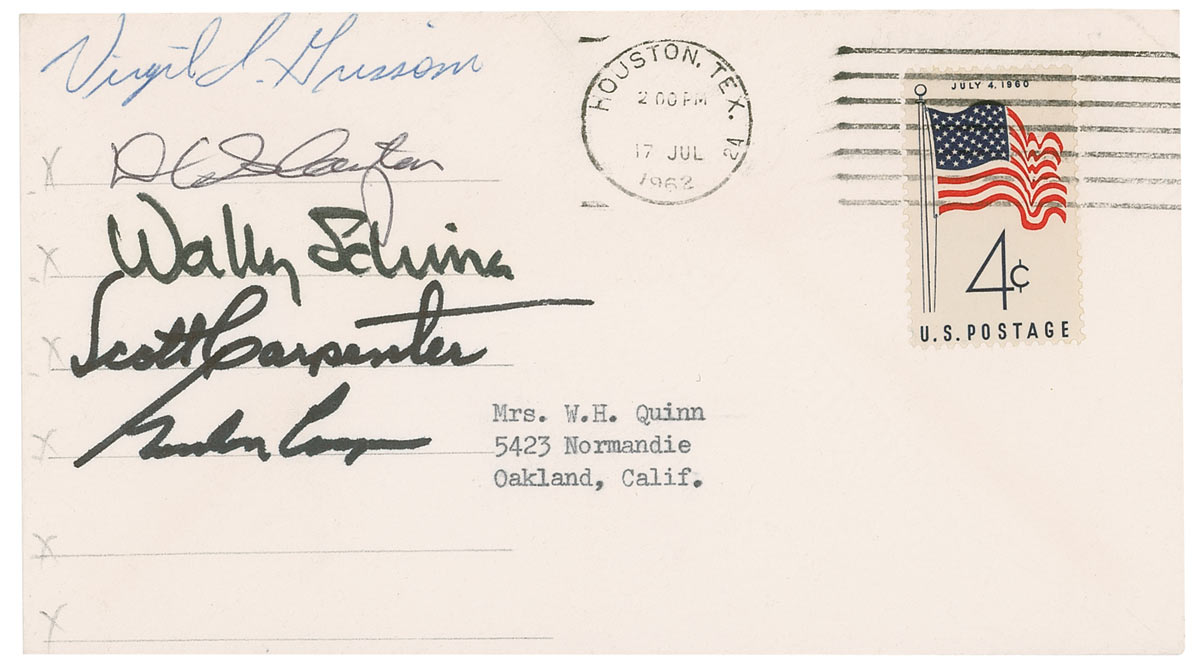 Virgil I. Grissom
HOUSTON, TEX.
2 00 PM
17 JUL
24
1962
JULY 4, 1960
4¢
U.S. POSTAGE
X D K Slayton
X Wally Schirra
X Scott Carpenter
X Gordon Cooper
Mrs. W.H. Quinn
5423 Normandie
Oakland, Calif.
X
X